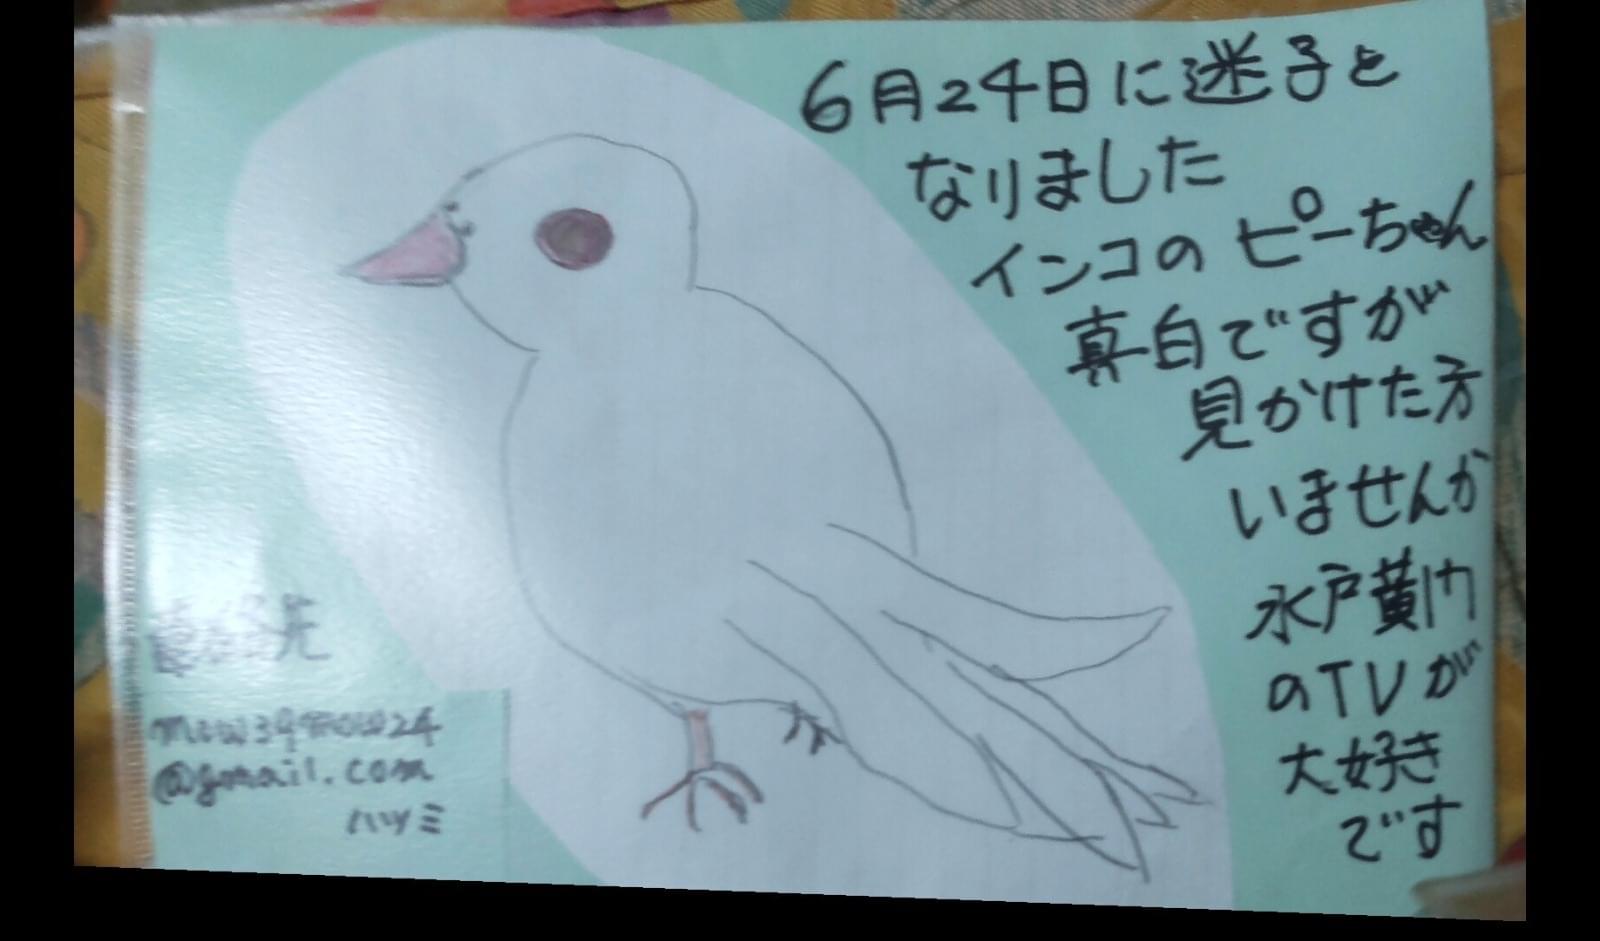 6月24日に迷子と
なりました
インコのピーちゃん
真白ですが
見かけた方
いませんか
水戸黄門
のTVが
大好き
です
連絡先
@gmail.com
ハツミ